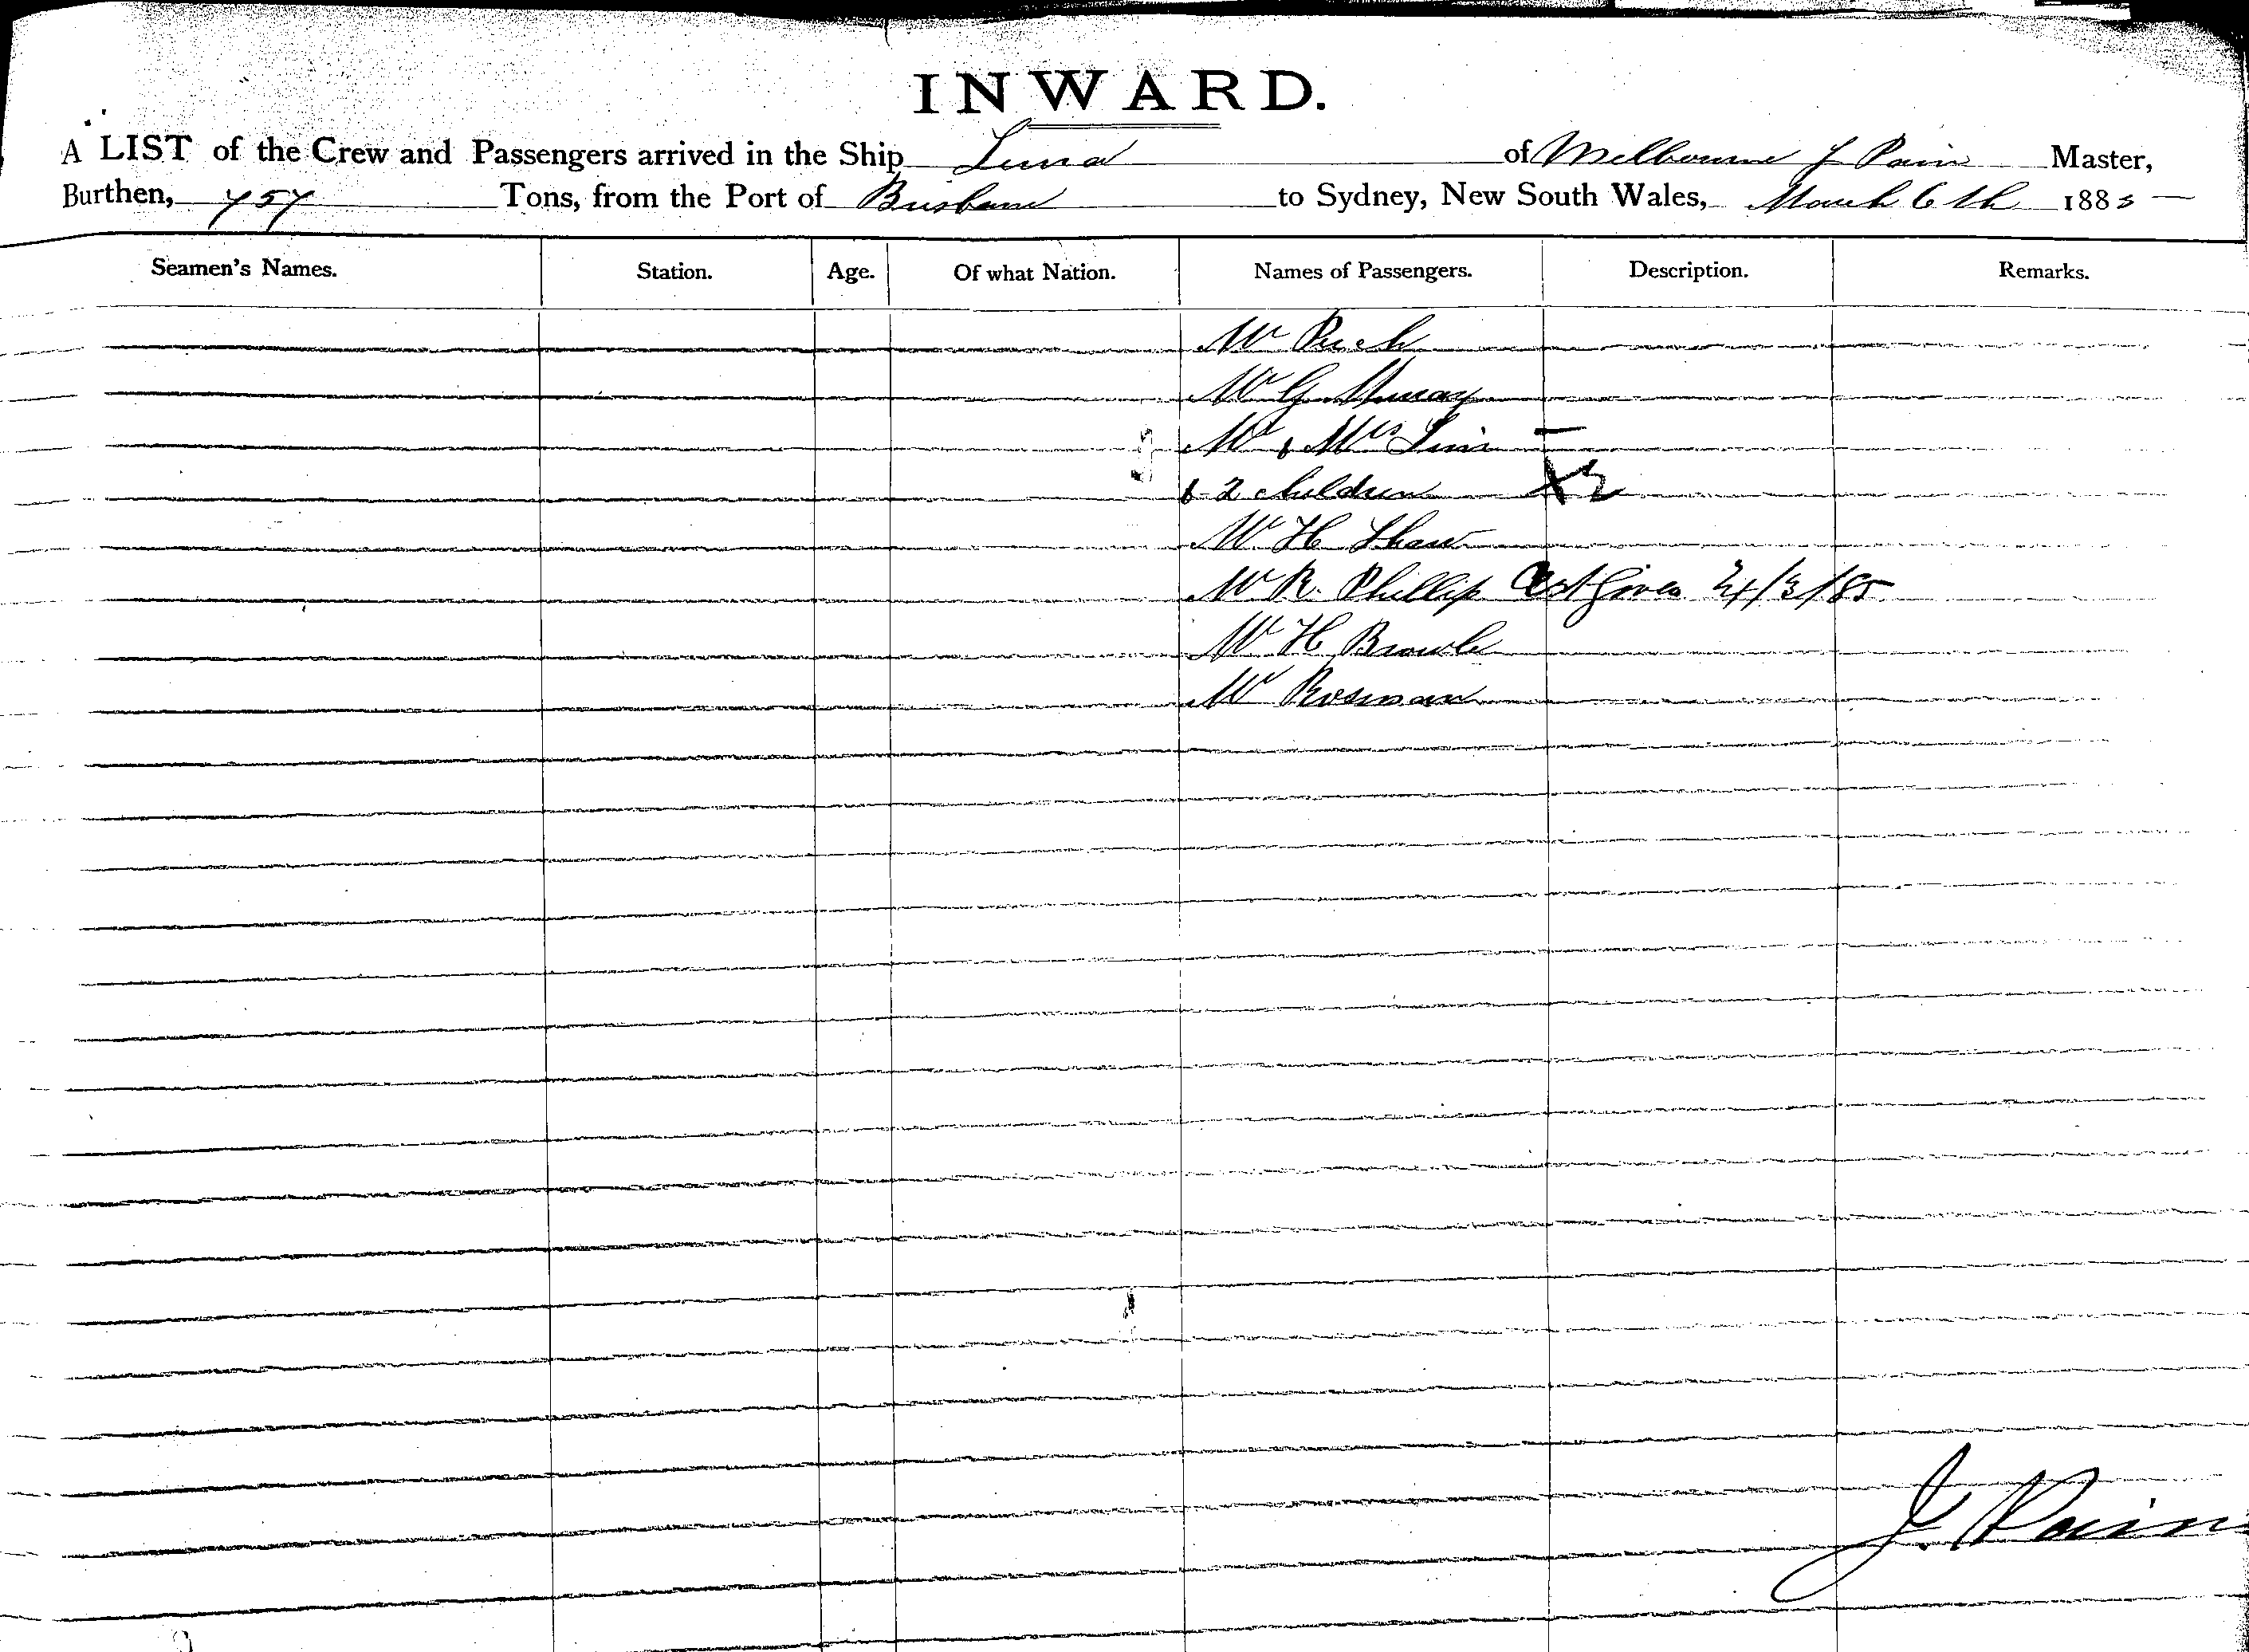 INWARD.
A LIST of the Crew and Passengers arrived in the Ship Luna of Melbourne J Pain Master,
Burthen, 757 Tons, from the Port of Brisbane to Sydney, New South Wales, March 6th 1885
Seamen's Names. Station. Age. Of what Nation. Names of Passengers. Description. Remarks.
Mr
Mr G Murray
Mr & Mrs
& 2 children X2
Mr H Shaw
Mr R. Phillip Cert Given 24/3/85
Mr H
Mr Rosman
J. Pain